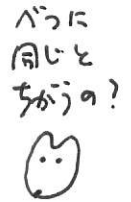 べつに
同じと
ちがうの？